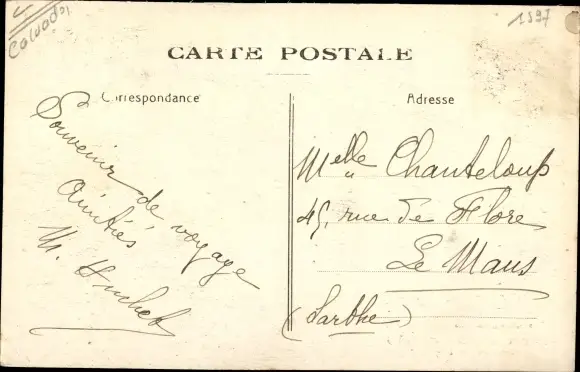 Calvados
1597
CARTE POSTALE
Correspondance
Adresse
Souvenir de voyage
Amitiés
M. Huchet
Melle Chanteloup
45, rue de Flore
Le Mans
(Sarthe)